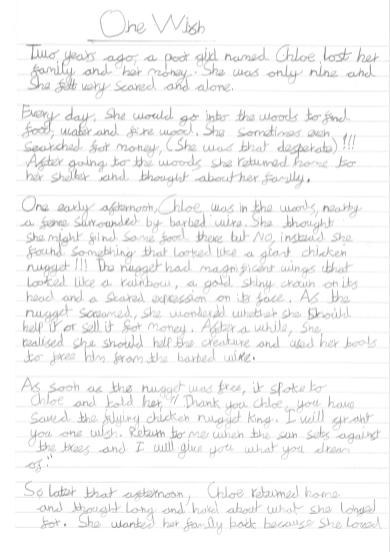 One Wish
Two years ago, a poor girl named Chloe, lost her
family and her money. She was only nine and
she felt very scared and alone.
Every day, she would go into the woods to find
food, water and fire wood. She sometimes even
searched for money, (she was that desperate) !!!
After going to the woods she returned home to
her shelter and thought about her family.
One early afternoon, Chloe was in the woods, nearby
a fence surrounded by barbed wire. She thought
she might find some food there but NO, instead she
found something that looked like a giant chicken
nugget!!! The nugget had magnificent wings that
looked like a rainbow, a gold shiny crown on its
head and a scared expression on its face. As the
nugget screamed, she wondered whether she should
help it or sell it for money. After a while, she
realised she should help the creature and used her
to free him from the barbed wire.
As soon as the nugget was free, it spoke to
Chloe and told her, "Thank you Chloe, you have
saved the flying chicken nugget king. I will grant
you one wish. Return to me when the sun sets against
the trees and I will give you what you dream
of."
So later that afternoon, Chloe returned home
and thought long and hard about what she longed
for. She wanted her family back because she loved